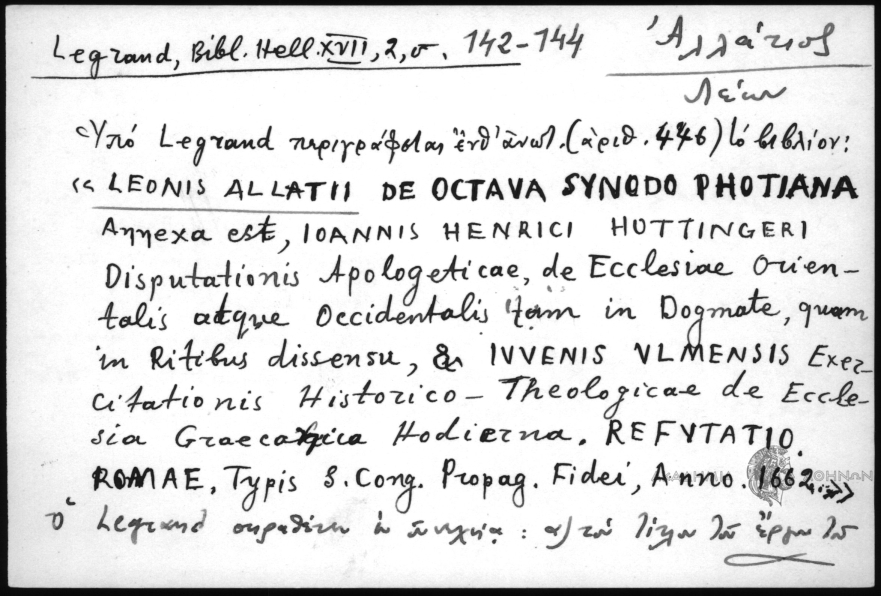 Legrand, Bibl. Hell. XVII, 2, σ. 142-144
Ἀλλάτιος
Λέων
Ὑπό Legrand περιγράφεται ἐνθ' ἀνωτ. (ἀριθ. 446) τό βιβλίον:
«LEONIS ALLATII DE OCTAVA SYNODO PHOTIANA
Annexa est, IOANNIS HENRICI HOTTINGERI
Disputationis Apologeticae, de Ecclesiae Orien-
talis atque Occidentalis tam in Dogmate, quam
in Ritibus dissensu, & IVVENIS VLMENSIS Exer-
citationis Historico-Theologicae de Eccle-
sia Graecanica Hodierna. REFVTATIO.
ROMAE, Typis S. Cong. Propag. Fidei, Anno. 1662.»
Ὁ Legrand παραθέτει ἐν συνεχείᾳ: α) τόν τίτλον τοῦ ἔργου τοῦ